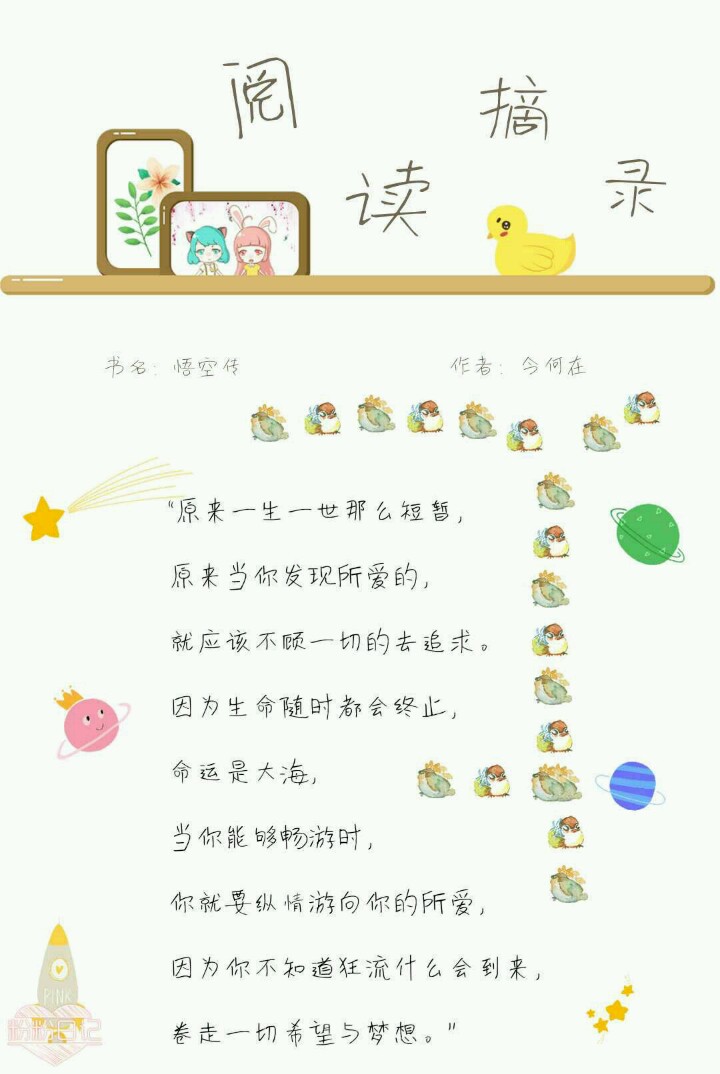 阅读摘录
书名：悟空传
作者：今何在
“原来一生一世那么短暂，
原来当你发现所爱的，
就应该不顾一切的去追求。
因为生命随时都会终止，
命运是大海，
当你能够畅游时，
你就要纵情游向你的所爱，
因为你不知道狂流什么会到来，
卷走一切希望与梦想。”
PINK
粉粉日记